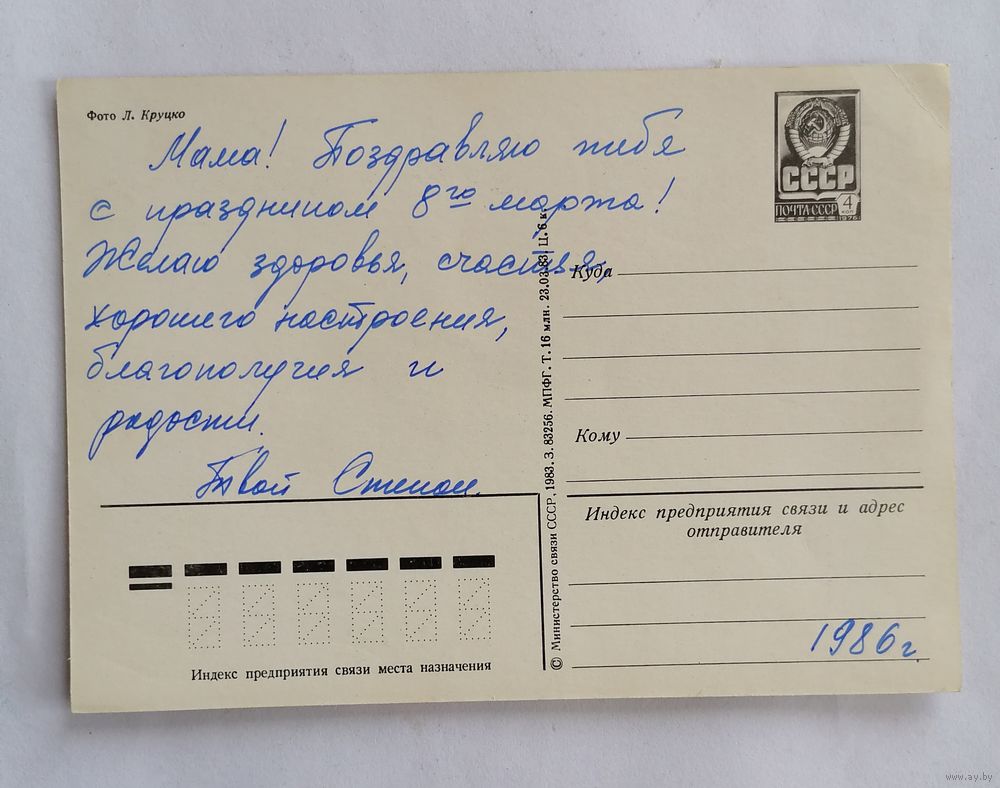 Фото Л. Круцко
Мама! Поздравляю тебя
с праздником 8го марта!
Желаю здоровья, счастья,
хорошего настроения,
благополучия и
радости.
Твой Степан.
СССР
ПОЧТА СССР
4
коп
1976
Куда
Кому
Индекс предприятия связи и адрес
отправителя
1986 г.
© Министерство связи СССР, 1983. З. 83256. МПФГ. Т. 16 млн. 23.03.83 Ц. 6 к.
Индекс предприятия связи места назначения
www.ay.by